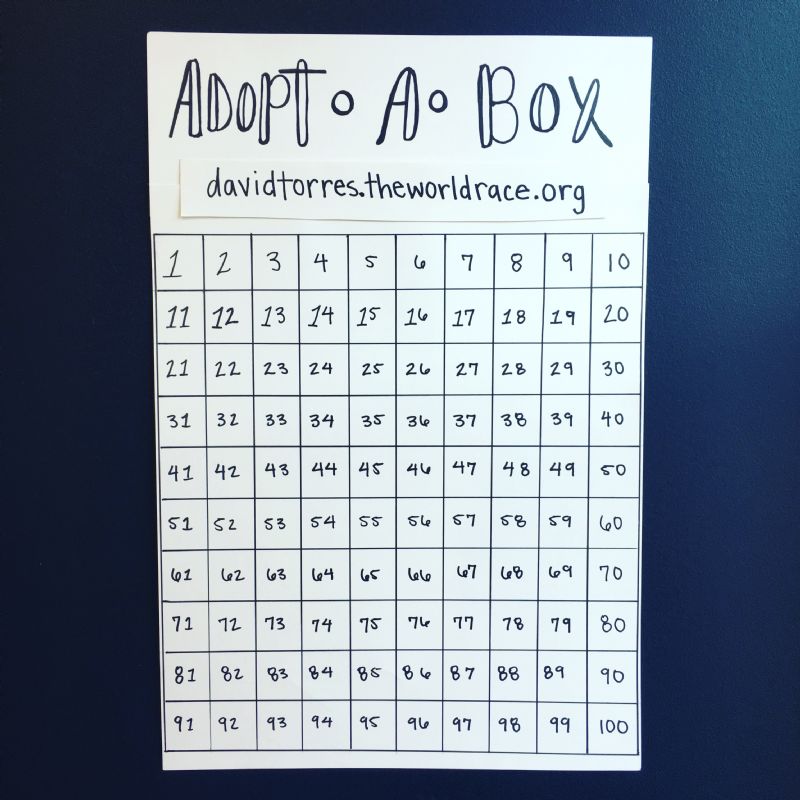 ADOPT • A • BOX
davidtorres.theworldrace.org
1 2 3 4 5 6 7 8 9 10
11 12 13 14 15 16 17 18 19 20
21 22 23 24 25 26 27 28 29 30
31 32 33 34 35 36 37 38 39 40
41 42 43 44 45 46 47 48 49 50
51 52 53 54 55 56 57 58 59 60
61 62 63 64 65 66 67 68 69 70
71 72 73 74 75 76 77 78 79 80
81 82 83 84 85 86 87 88 89 90
91 92 93 94 95 96 97 98 99 100